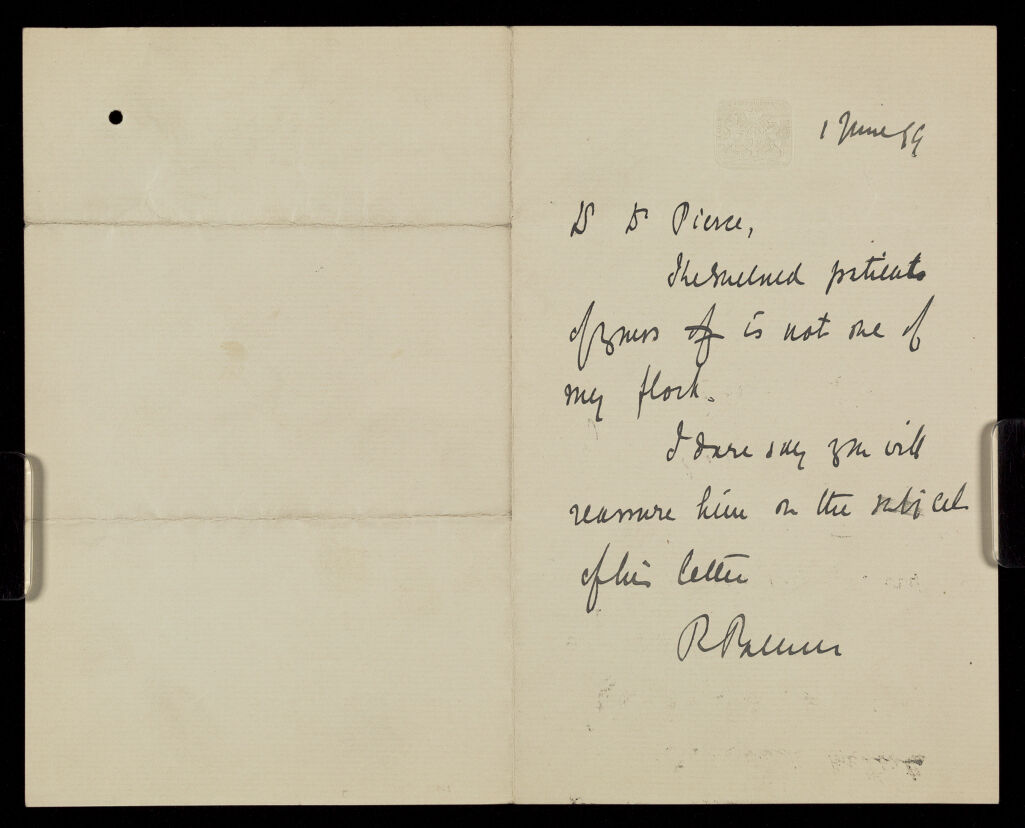 1 June 99
Dr Dr Pierce,
The enclosed patient
of yours of is not one of
my flock.
I dare say you will
reassure him on the subject
of his letter
R Palmer